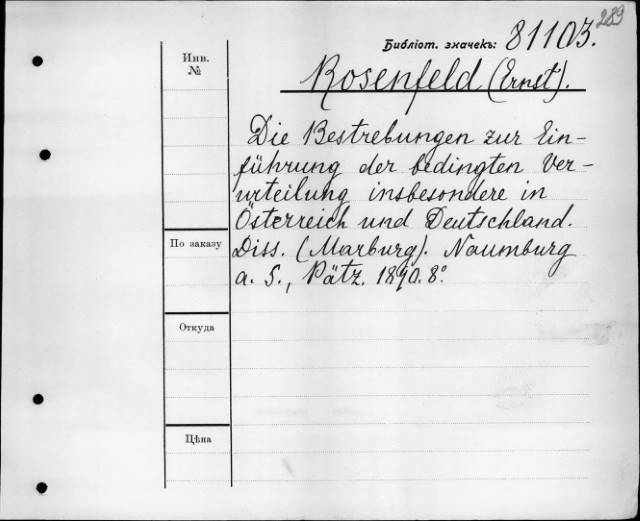 289
Библіот. значекъ: 81103.
Инв.
№
Rosenfeld (Ernst).
Die Bestrebungen zur Ein-
führung der bedingten Ver-
urteilung insbesondere in
Österreich und Deutschland.
По заказу
Diss. (Marburg). Naumburg
a. S., Pätz. 1890. 8°
Откуда
Цѣна